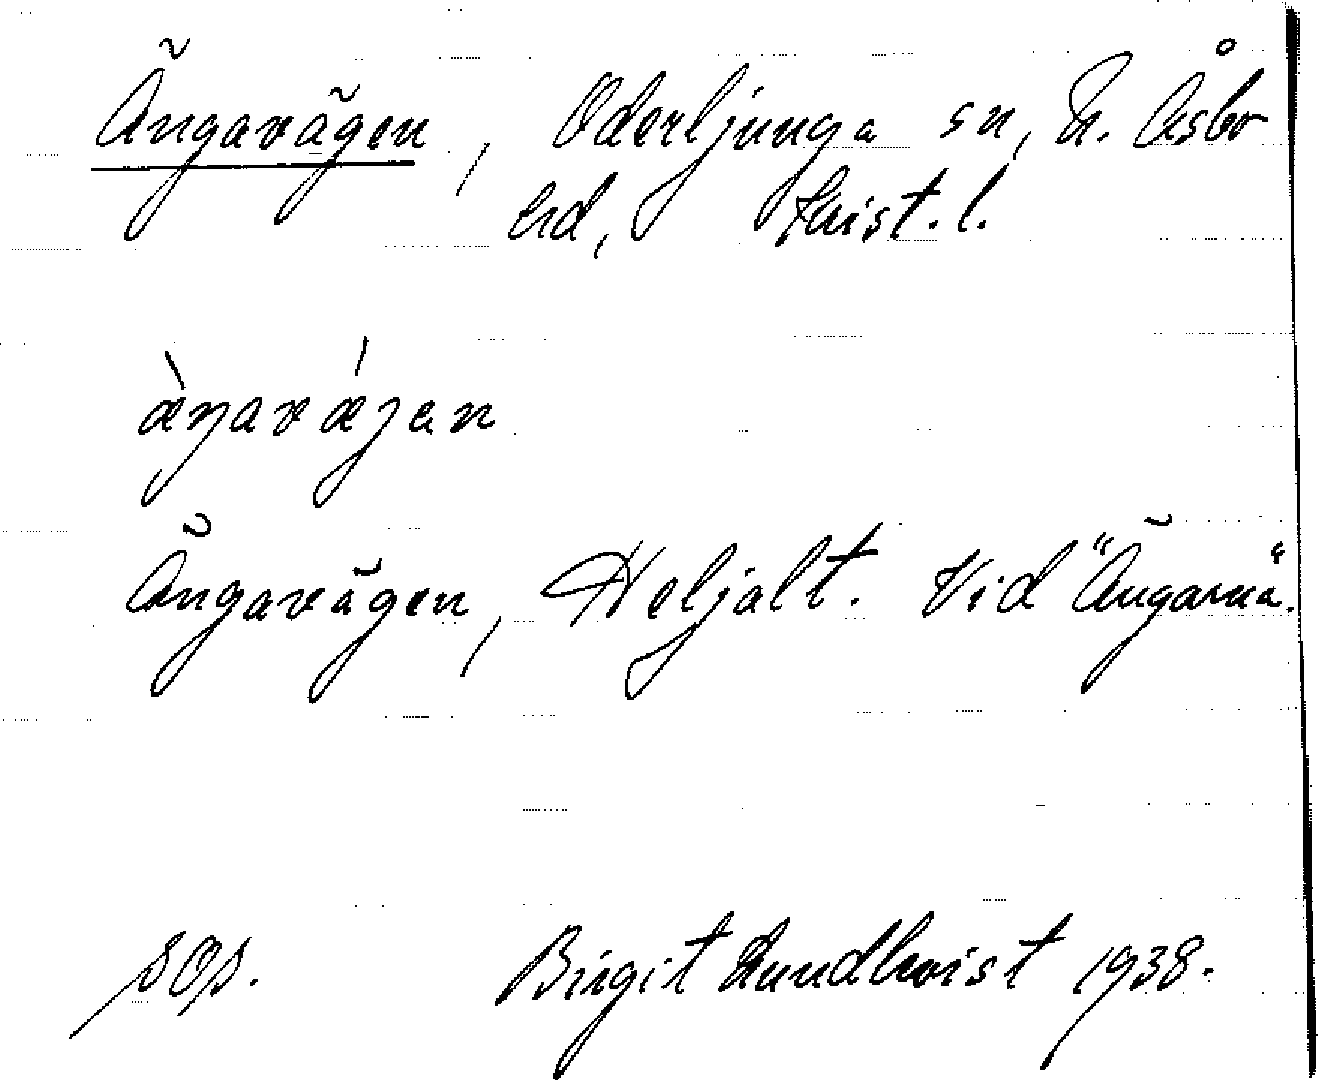 Ängavägen, Oderljunga sn, N. Åsbo
hd, Krist. l.
æ̀ŋavǽjen
Ängavägen, Heljalt. Vid "Ängarna".
sOs. Birgit Lundkvist 1938.